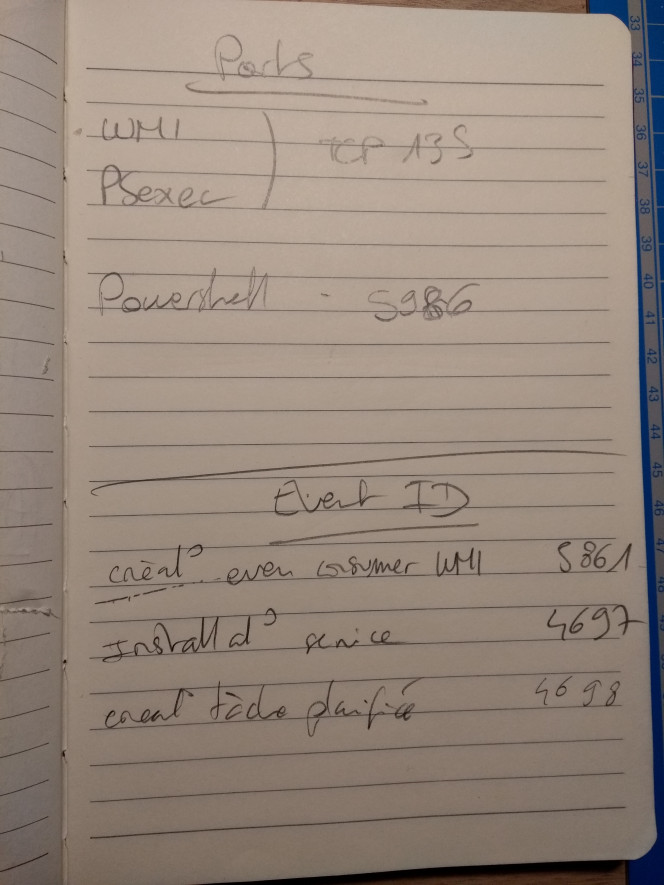 Ports
WMI
TCP 135
PSexec
Powershell - 5986
Event ID
créat° even consumer WMI 5861
Installat° service 4697
creat° tâche planifiée 4698
33
34
35
36
37
38
39
40
41
42
43
44
45
46